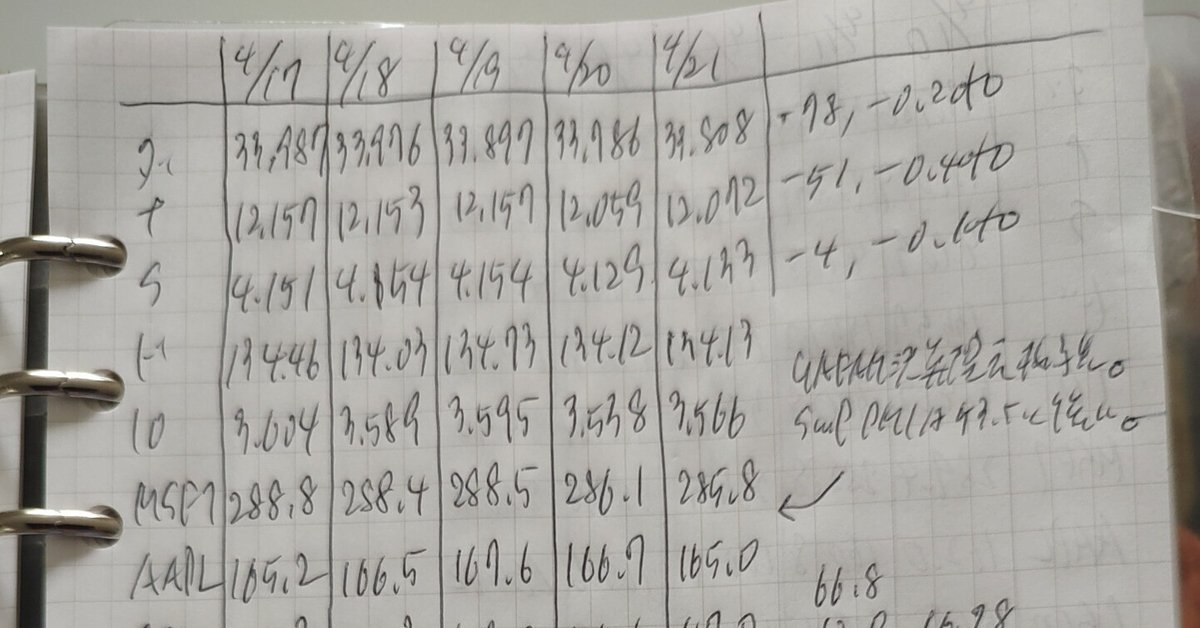 4/17 4/18 4/19 4/20 4/21
ダ 33,987 33,976 33.897 33,786 33.808 -78, -0.2%
ナ 12,157 12,153 12,157 12,059 12.072 -51, -0.4%
S 4.151 4.154 4.154 4.129 4.133 -4, -0.1%
ド 134.46 134.03 134.73 134.12 134.13
10 3.604 3.589 3.595 3.538 3.566
S&P PMI は 53.5
MSFT 288.8 288.4 288.5 286.1 285.8
AAPL 165.2 166.5 167.6 166.7 165.0
66.8